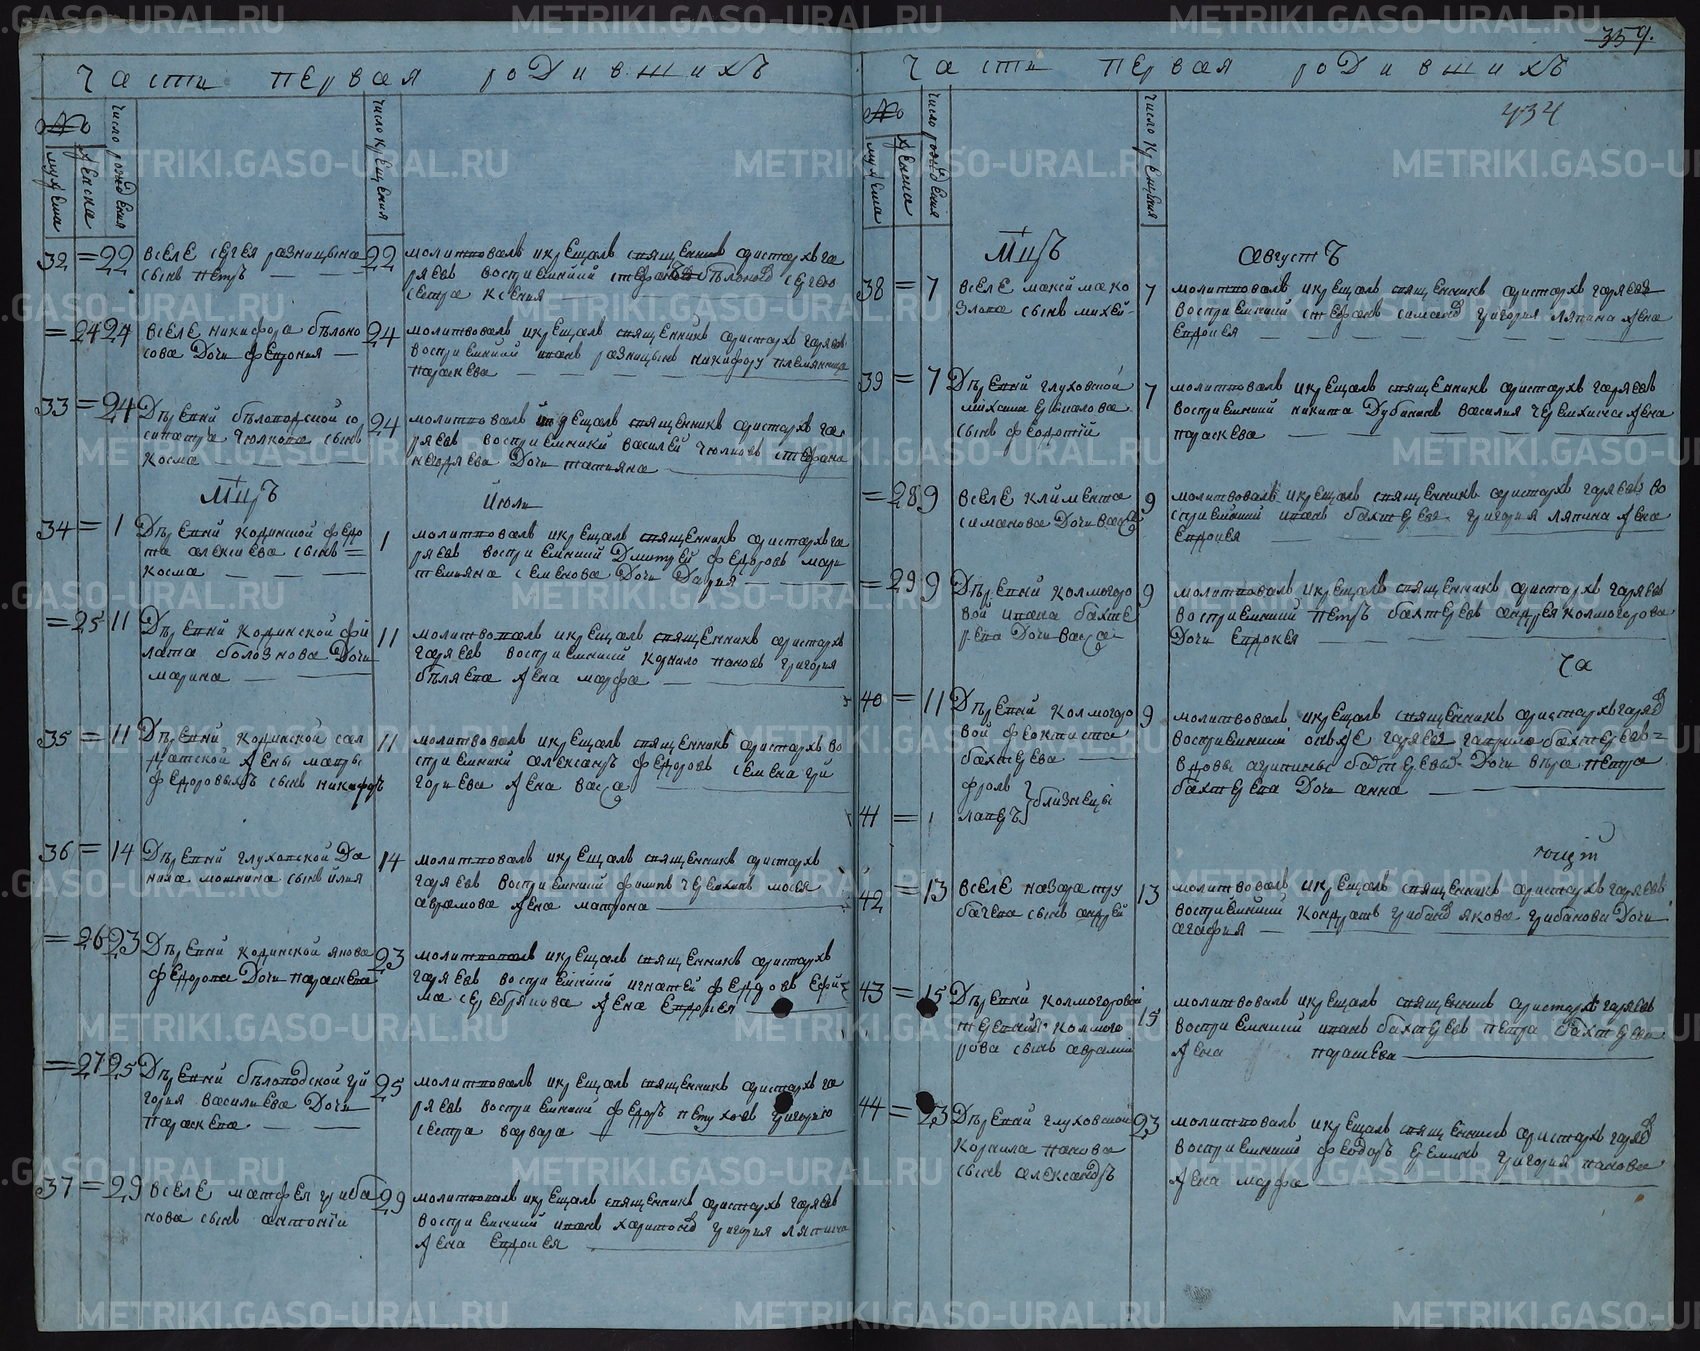 Части первая родившихъ
№
мужеска
женска
число рождения
число крещения
32 = 22 вселе сергея разницына
сынъ петръ
22 молитвовалъ икрещалъ священникъ аристархъ га
ряевъ восприемники стефанъ бѣлоносов сергею
сестра ксения
= 24 24 вселе никифора бѣлоно
сова дочи феврония
24 молитвовалъ икрещалъ священникъ аристархъ гаряевъ
восприемники иванъ разницынъ никифору племянница
параскева
33 = 24 Дѣревни бѣловодской со
сипатра чюлкова сынъ
косма
24 молитвовалъ икрещалъ священникъ аристархъ га
ряевъ восприемники василей чюлковъ стефана
дочи татияна
Мцъ Июль
34 = 1 Дѣревни кодинской федо
та алексиева сынъ =
косма
1 молитвовалъ икрещалъ священникъ аристархъ га
ряевъ восприемники дмитрей федоровъ мари
тамияна семенова дочи дария
= 25 11 Дѣревни кодинской фи
лата болознова дочи
марина
11 молитвовалъ икрещалъ священникъ аристархъ
гаряевъ восприемники корнило пановъ григория
бѣляева жена марфа
35 = 11 Дѣревни кодинской сал
датской жены мавры
федоровыхъ сынъ никифоръ
11 молитвовалъ икрещалъ священникъ аристархъ во
сприемники александръ федоровъ семена гри
гориева жена васса
36 = 14 Дѣревни глуховской да
нила мошнина сынъ илия
14 молитвовалъ икрещалъ священникъ аристархъ
гаряевъ восприемники филипъ черемхинъ мосея
аврамова жена матрона
= 26 23 Дѣревни кодинской якова
федорова дочи параскева
23 молитвовалъ икрещалъ священникъ аристархъ
гаряевъ восприемники игнатей федоровъ ефи
ма серебрякова жена евдокея
= 27 25 Дѣревни бѣловодской гри
гория василиева дочи
параскева
25 молитвовалъ икрещалъ священникъ аристархъ га
ряевъ восприемники федоръ петуховъ григорию
сестра варвара
37 = 29 вселе матфея гриба
нова сынъ антоний
29 молитвовалъ икрещалъ священникъ аристархъ гаряевъ
восприемники иванъ харитонов григория ляпина
жена евдокея
359.
Части первая родившихъ
434
№
мужеска
женска
число рождения
число крещения
Мцъ Августъ
38 = 7 вселе максима ко
злова сынъ михей
7 молитвовалъ икрещалъ священникъ аристархъ гаряевъ
восприемники стефанъ симанов григория ляпина жена
евдокея
39 = 7 Дѣревни глуховской
михаила
сынъ федотий
7 молитвовалъ икрещалъ священникъ аристархъ гаряевъ
восприемники никита дубининъ василия черемхина жена
параскева
= 28 9 вселе климента
симанова дочи васса
9 молитвовалъ икрещалъ священникъ аристархъ гаряевъ во
сприемники иванъ бахтерев григория ляпина жена
евдокея
= 29 9 Дѣревни колмогоро
вой ивана бахте
рева дочи васса
9 молитвовалъ икрещалъ священникъ аристархъ гаряевъ
восприемники петръ бахтеревъ андрея колмогорова
дочи евдокея
ча
40 = 11 Дѣревни колмогоро
вой феоктиста
бахтерева
фролъ
41 = 1 лавръ } близнецы
9 молитвовалъ икрещалъ священникъ аристархъ гаряев
восприемники онъже гаряев гаврило бахтеревъ =
вдовы агрипины бахтеревы дочи вѣра петра
бахтерева дочи анна
42 = 13 вселе назара тру
бачева сынъ андрей
13 молитвовалъ икрещалъ священникъ аристархъ гаряевъ
восприемники кондратъ грибанов якова грибанова дочи
агафия
43 = 15 Дѣревни колмогоровой
колмого
рова сынъ аврамий
15 молитвовалъ икрещалъ священникъ аристархъ гаряевъ
восприемники иванъ бахтеревъ петра бахтерева
жена параскева
44 = 23 Дѣревни глуховской
корнила панова
сынъ александръ
23 молитвовалъ икрещалъ священникъ аристархъ гаряев
восприемники феодоръ еремин григория панова
жена марфа